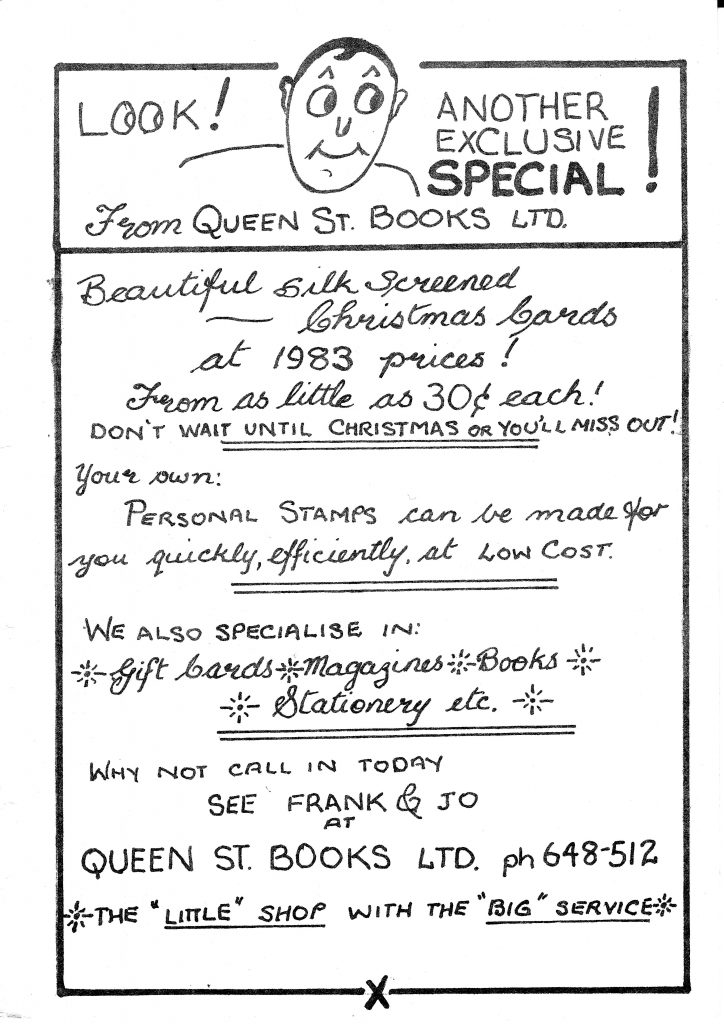 LOOK!
ANOTHER
EXCLUSIVE
SPECIAL!
From QUEEN ST. BOOKS LTD.
Beautiful Silk Screened
— Christmas Cards
at 1983 prices!
From as little as 30¢ each!
DON'T WAIT UNTIL CHRISTMAS OR YOU'LL MISS OUT!
Your own:
PERSONAL STAMPS can be made for
you quickly, efficiently, at LOW COST.
WE ALSO SPECIALISE IN:
Gift Cards Magazines Books
Stationery etc.
WHY NOT CALL IN TODAY
SEE FRANK & JO
AT
QUEEN ST. BOOKS LTD. ph 648-512
THE "LITTLE" SHOP WITH THE "BIG" SERVICE
X